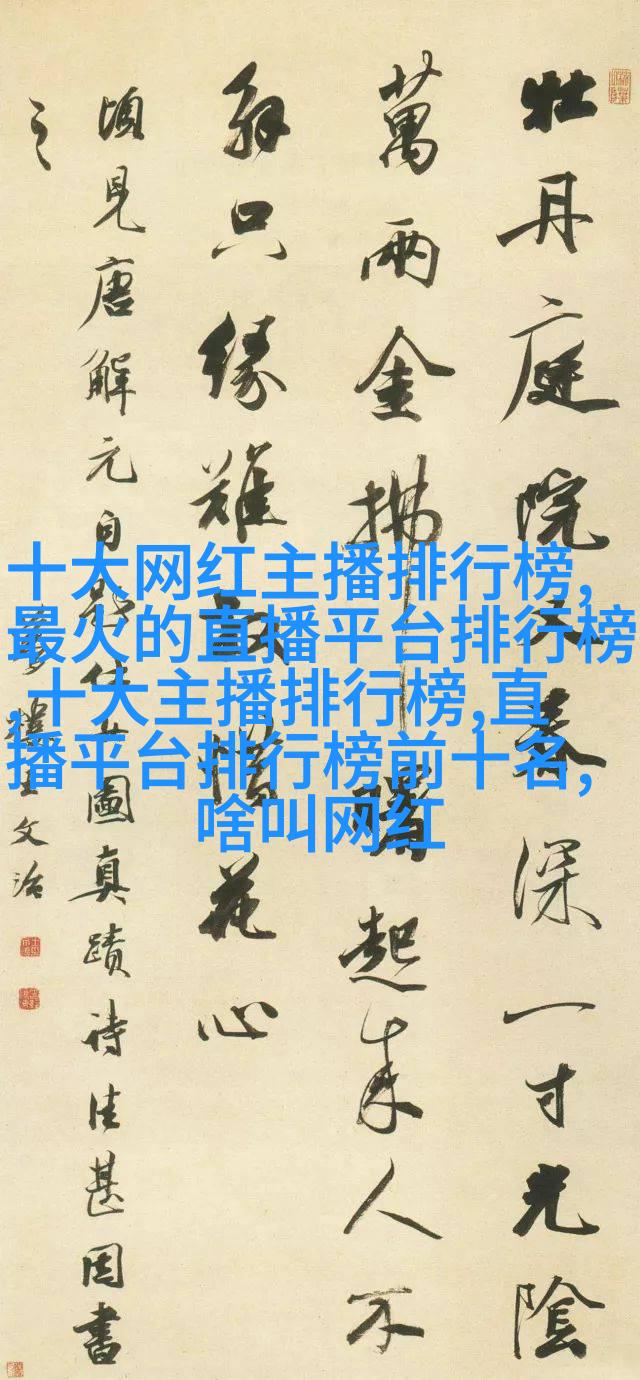 牡丹庭院又春深一寸光陰
萬兩金拂曙起來人不
解只緣難放惜花心
頃見唐解元自題仕女圖真蹟詩佳甚因書
之
夢樓王文治
十大网红主播排行榜,
最火的直播平台排行榜
,十大主播排行榜,直
播平台排行榜前十名,
啥叫网红